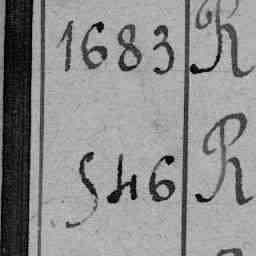 1683 R
546 R